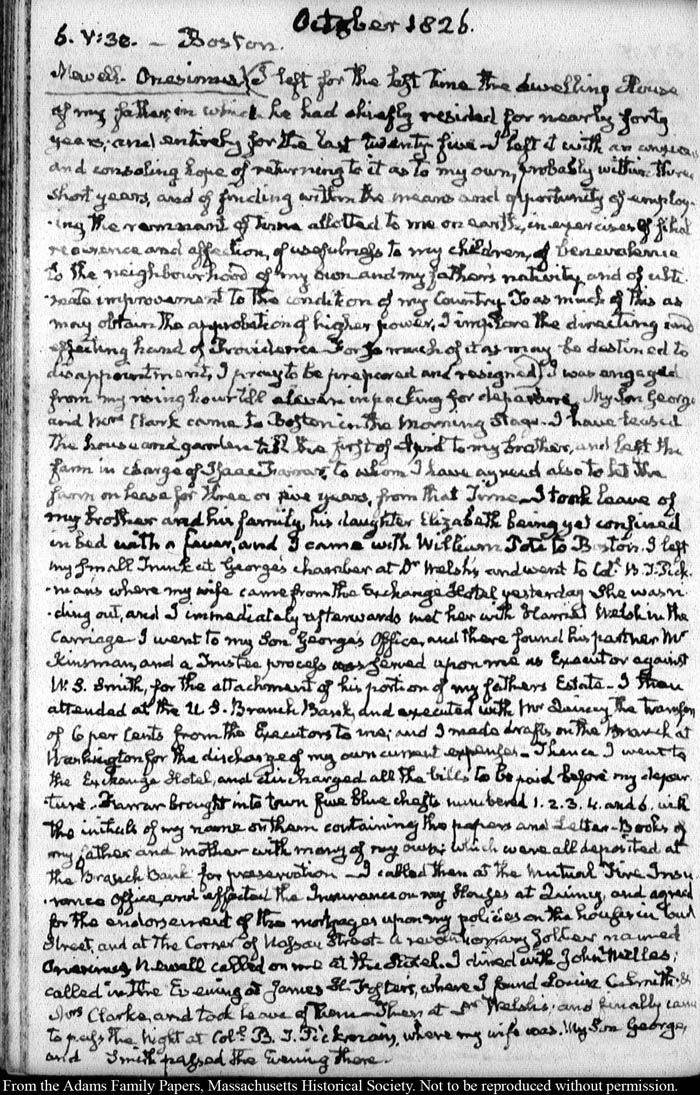 October 1826.
6. V:30. — Boston.
Newell. Onesimus) I left for the last time the dwelling House
of my father, in which he had chiefly resided for nearly forty
years; and entirely for the last twenty five — I left it with an anxious
and consoling hope of returning to it as to my own, probably within three
short years, and of finding within the means and opportunity of employ-
-ing the remnant of time allotted to me on earth, in exercises of filial
reverence and affection, of usefulness to my children, of benevolence
to the neighbourhood of my own and my fathers nativity, and of ulti-
-mate improvement to the condition of my Country. To as much of this as
may obtain the approbation of higher power, I implore the directing and
effecting hand of Providence. For so much of it as may be destined to
disappointment, I pray to be prepared and resigned) I was engaged
from my rising hour till eleven in packing for departure. My Son George
and Mrs. Clark came to Boston in the morning Stage. I have leased
the house and garden till the first of April to my brother, and left the
farm in charge of Isaac Farrar, to whom I have agreed also to let the
farm on lease for three or five years, from that Time — I took leave of
my brother and his family, his daughter Elizabeth being yet confined
in bed with a fever, and I came with William Pote to Boston. I left
my small Trunk at George's chamber at Dr. Welsh's and went to Col. B. T. Pick-
-man's where my wife came from the Exchange Hotel yesterday. She was ri-
-ding out, and I immediately afterwards met her with Harriet Welsh in the
Carriage. I went to my Son George's Office, and there found his partner Mr.
Kinsman, and a Trustee process was served upon me as Executor against
W. S. Smith, for the attachment of his portion of my fathers Estate — I then
attended at the U. S. Branch Bank, and executed with Mr. Quincy the transfer
of 6 per Cents from the Executors to me; and I made drafts on the Branch at
Washington for the discharge of my own current expenses — Thence I went to
the Exchange Hotel, and discharged all the bills to be paid before my depar-
-ture. Farrar brought into town five blue chests numbered 1. 2. 3. 4. and 6. with
the initials of my name on them containing the papers and Letter-Books of
my father and mother with many of my own; which were all deposited at
the Branch Bank for preservation — I called then at the Mutual Fire Insu-
-rance Office, and effected the Insurance on my Houses at Quincy, and agreed
for the endorsement of the mortgages upon my policies on the houses in Court
Street, and at the Corner of Nassau Street — a revolutionary Soldier named
Onesimus Newell called on me at the Hotel. I dined with John Welles;
called in the Evening at James H. Foster's, where I found Louisa C. Smith, &
Mrs Clarke, and took leave of them — Then at Dr Welsh's; and finally came
to pass the night at Col. B. T. Pickman's, where my wife was. My Son George,
and Smith passed the Evening there.
From the Adams Family Papers, Massachusetts Historical Society. Not to be reproduced without permission.